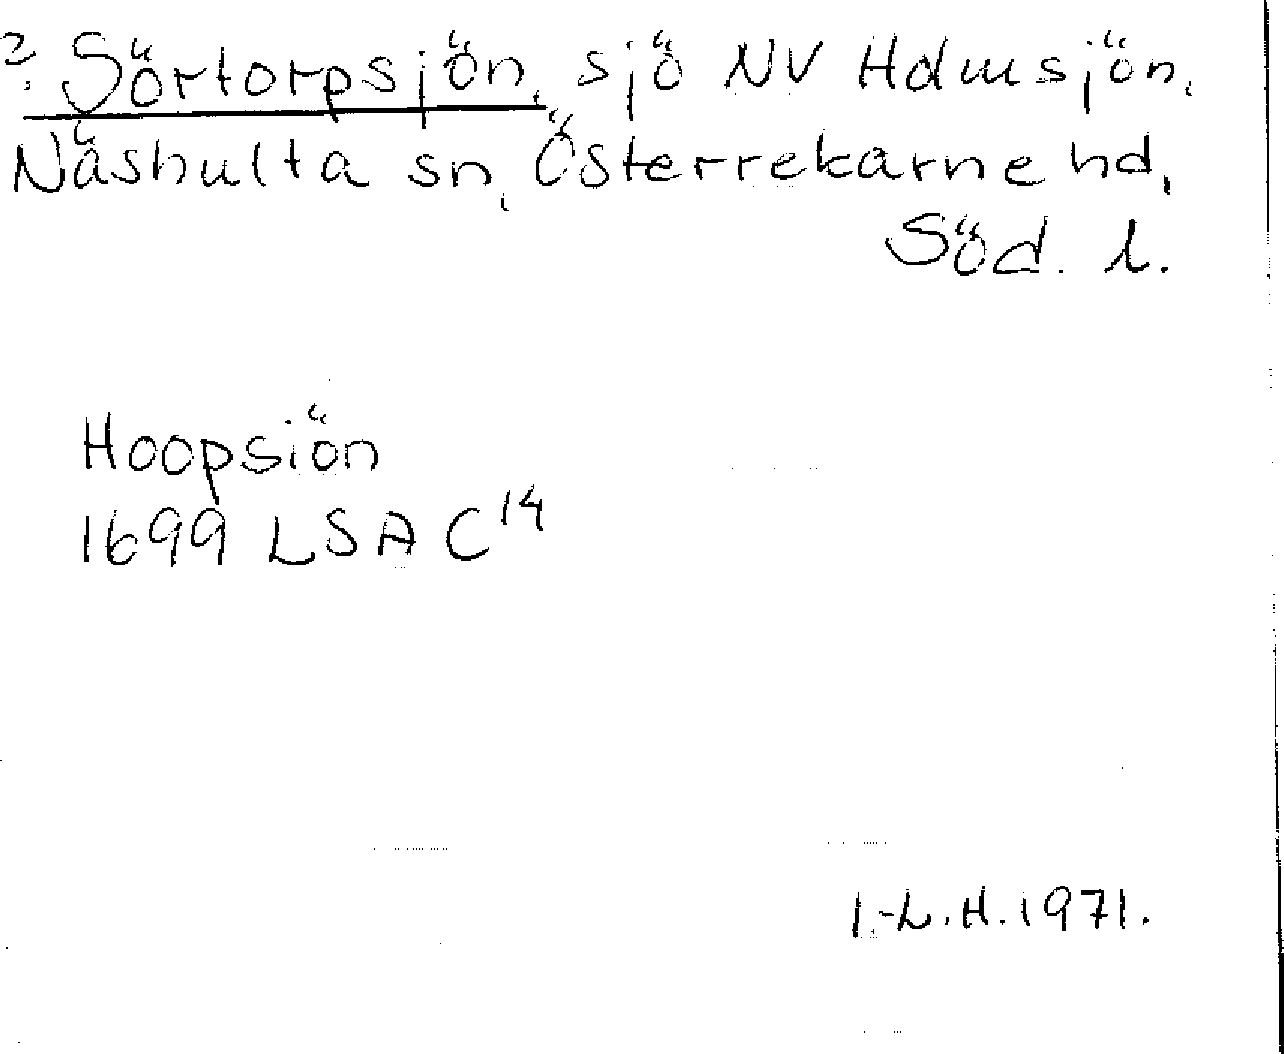 ?. Sörtorpsjön, sjö NV Holmsjön,
Näshulta sn, Österrekarne hd,
Söd. l.
Hoopsiön
1699 LSA C14
I.-L.H. 1971.